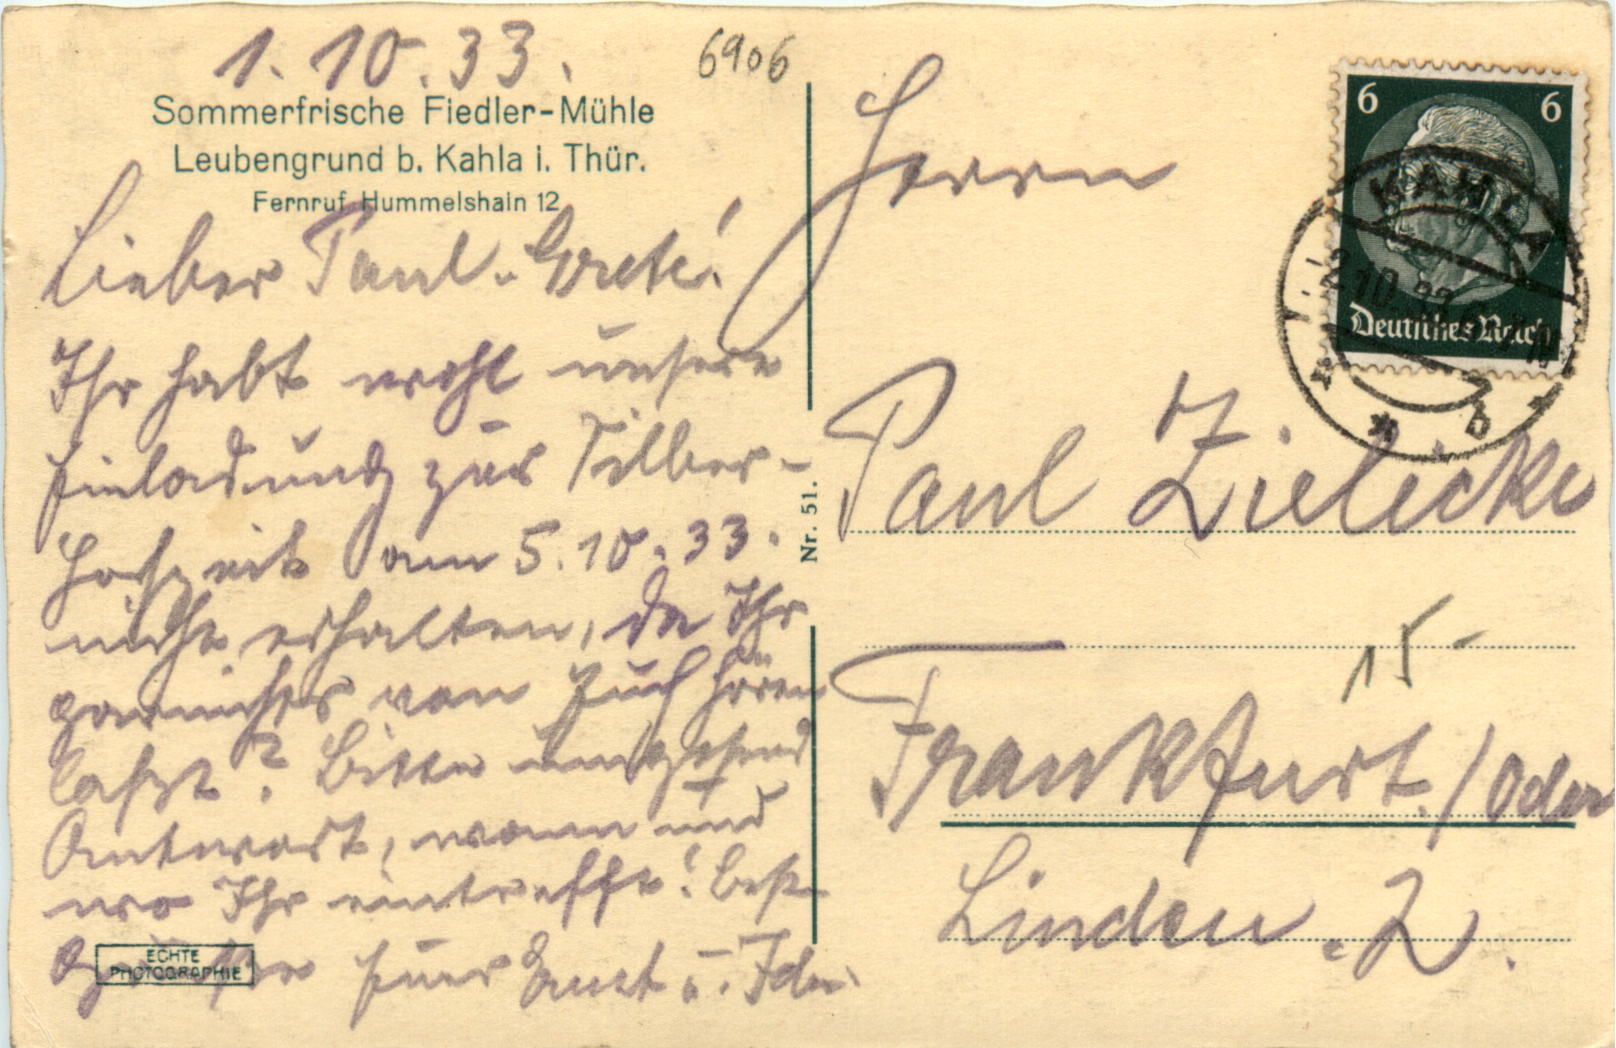 1.10.33.
6906
Sommerfrische Fiedler-Mühle
Leubengrund b. Kahla i. Thür.
Fernruf Hummelshain 12
Lieber Paul u. Grete!
Ihr habt wohl unsere
Einladung zur Silber-
Hochzeit am 5.10.33.
nicht erhalten, da Ihr
garnichts von Euch hören
laßt? Bitte umgehend
Antwort, wann und
wo Ihr eintrefft! Best
Grüße Euer Ernst u. Ida.
ECHTE
PHOTOGRAPHIE
Nr. 51.
6 6
Deutsches Reich
KAHLA
2.10.33
b
Herrn
Paul Zielicke
15-
Frankfurt./Oder
Linden. 2.